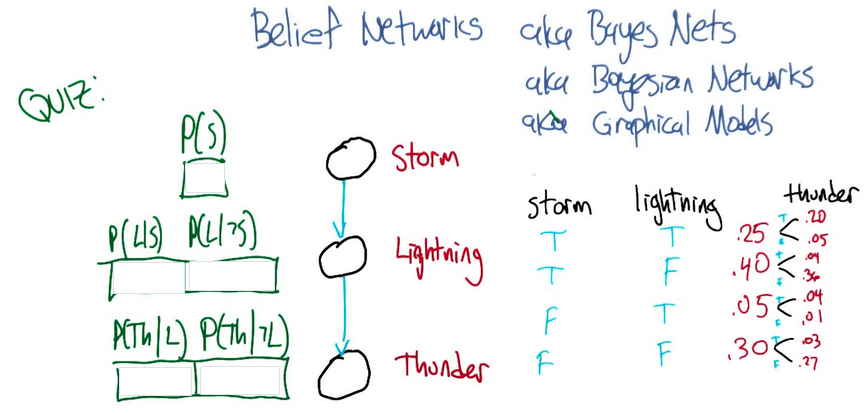 Belief Networks aka Bayes Nets
aka Bayesian Networks
aka Graphical Models
QUIZ:
P(S)
Storm
P(L|S) P(L|¬S)
Lightning
P(Th|L) P(Th|¬L)
Thunder
storm lightning thunder
T T .25 < T .20
F .05
T F .40 < T .04
F .36
F T .05 < T .04
F .01
F F .30 < T .03
F .27